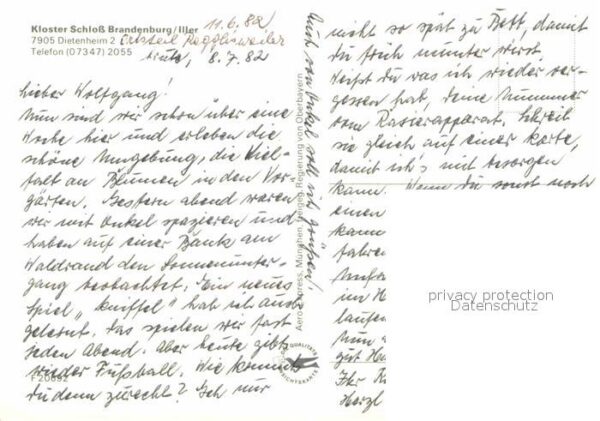 Kloster Schloß Brandenburg/Iller 11.6.82
7905 Dietenheim 2 Ortsteil Regglisweiler
Telefon (07347) 2055
8.7.82
Lieber Wolfgang!
Nun sind wir schon über eine
Woche hier und erleben die
schöne Umgebung, die Viel-
falt an Blumen in den Vor-
gärten. Gestern abend waren
wir mit Onkel spazieren und
haben auf einer Bank am
Waldrand den Sonnenunter-
gang beobachtet. Ein neues
Spiel "Kniffel" hab ich ausge-
gelernt. Das spielen wir fast
jeden Abend. Aber heute gibts
wieder Fußball. Wie kommst
du denn zurecht? Geh nur
F 20692
Auch von Onkel soll ich grüßen!
Aero-Express, München, Freigeg. Regierung von Oberbayern
QUALITÄTS
ANSICHTSKARTE
nicht so spät zu Bett, damit
du früh munter wirst
Weißt du was ich wieder ver-
gessen hab, deine Nummer
vom Rasierapparat. Schreib
sie gleich auf einer Karte,
damit ich's mit besorgen
kann. Wenn du sonst noch
einen
kann
fahren
Anfa
im H
laufen
Nun
gut
Ihr
Herzl
privacy protection
Datenschutz